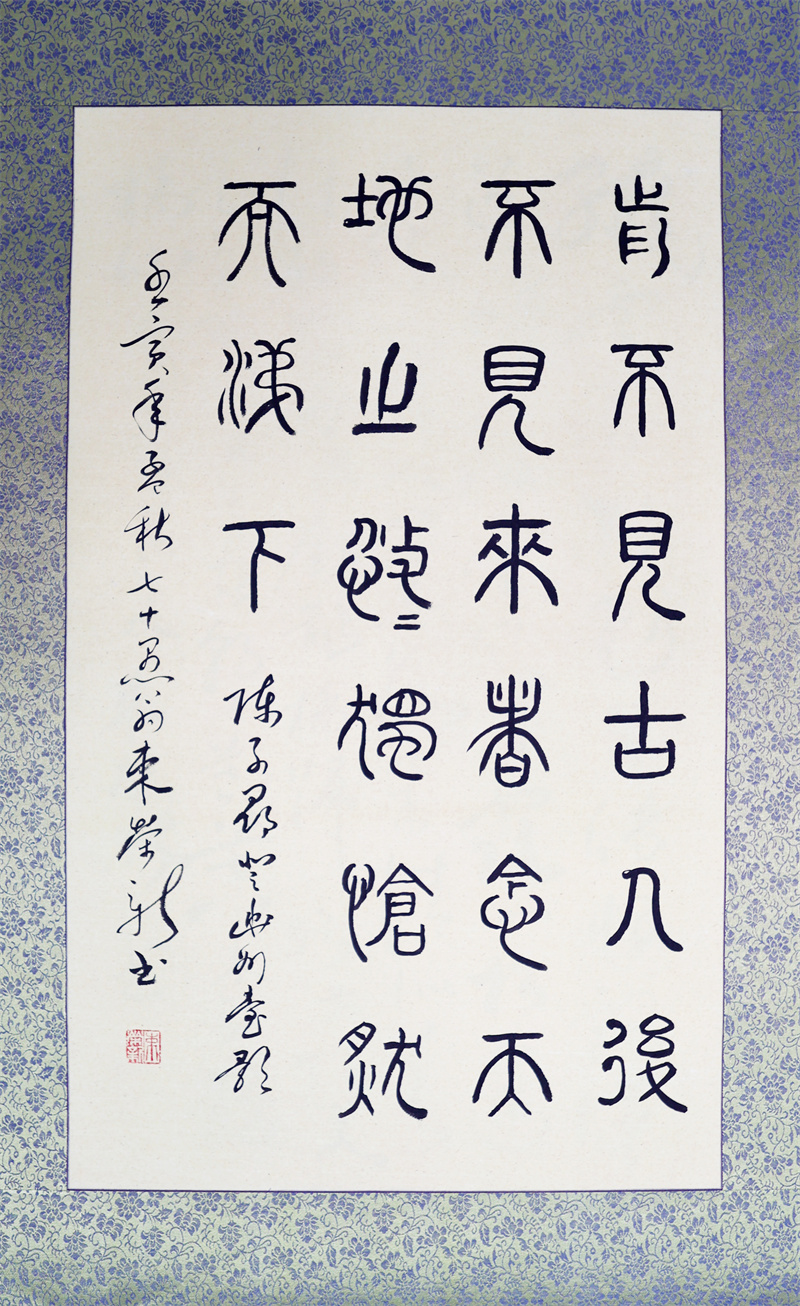 前不見古人後
不見來者念天
地之悠〻獨愴然
而涕下 陳子昂登幽州臺歌
壬寅年孟秋七十愚翁榮新书